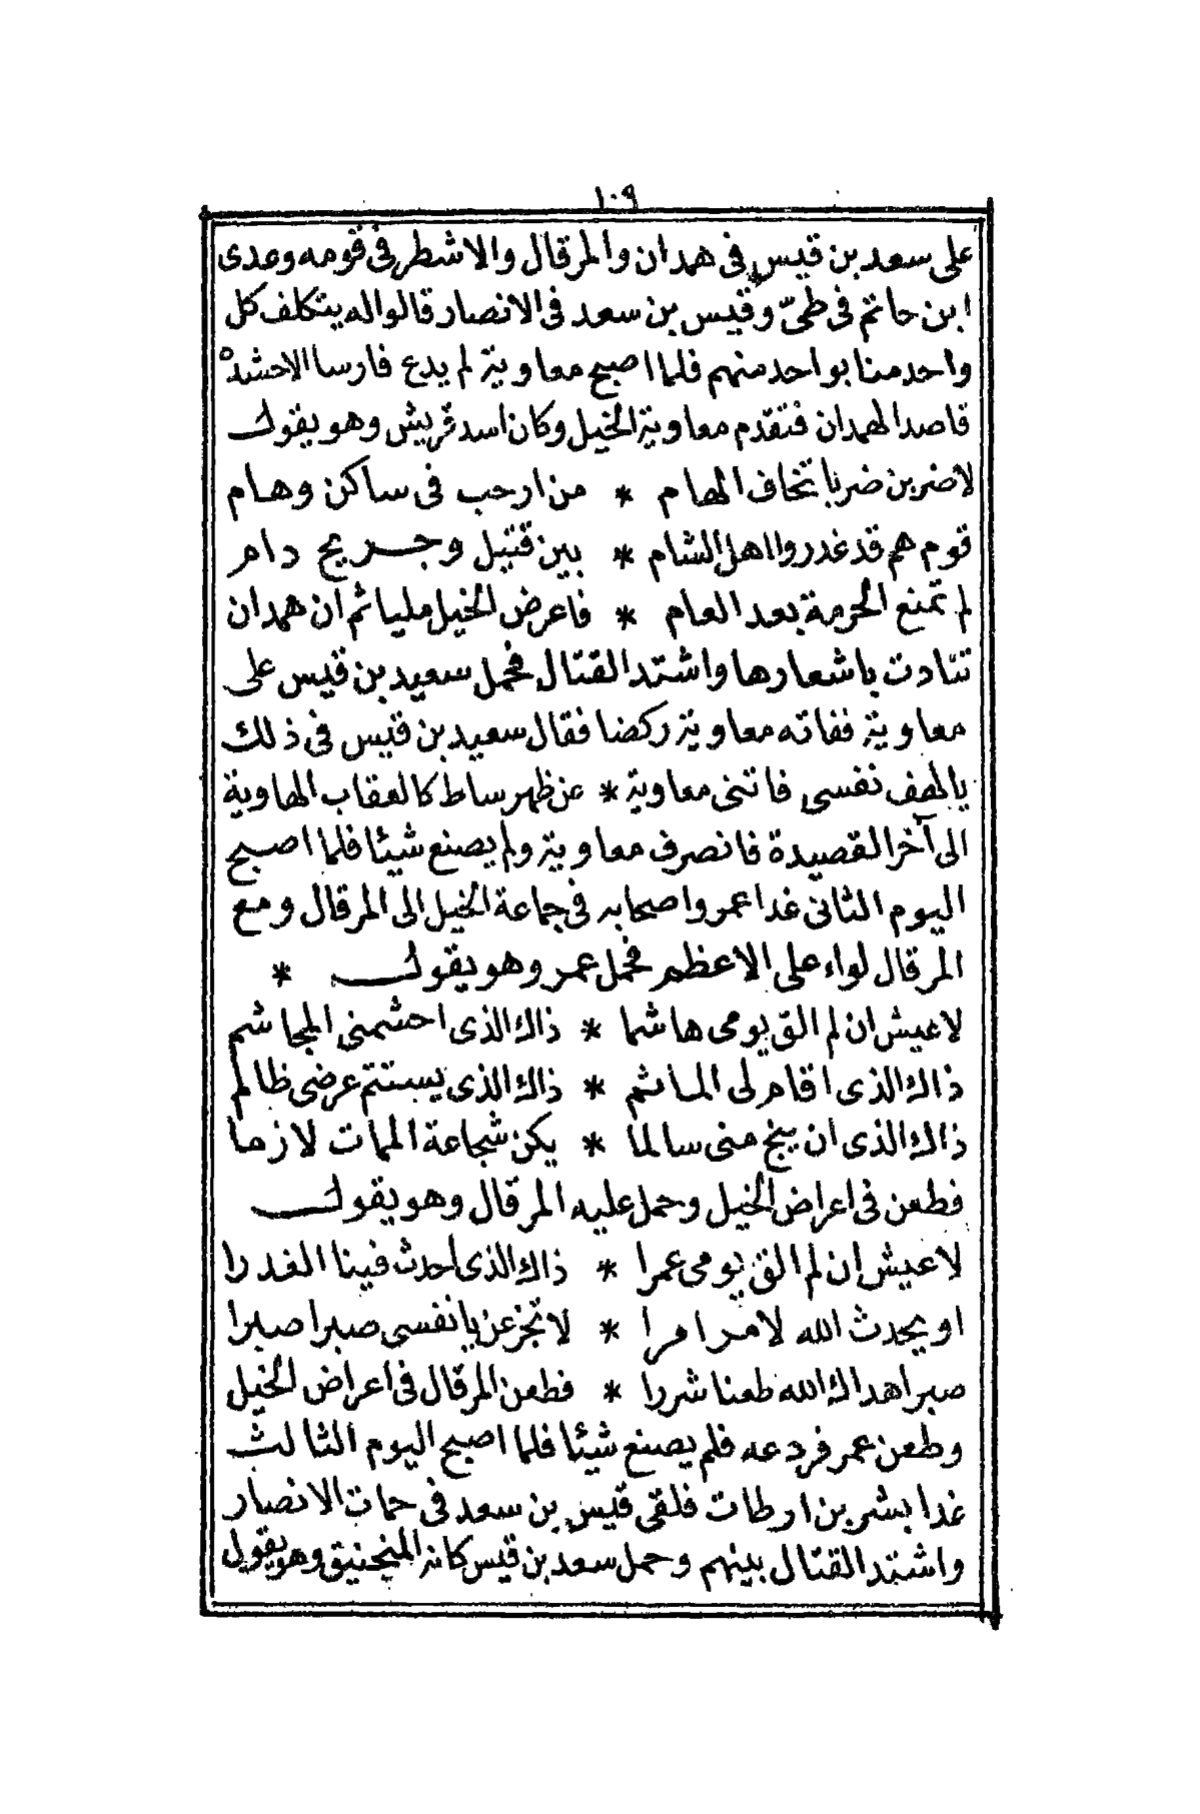 ١٠٩
على سعد بن قيس فى همدان والمرقال والاشطر فى قومه وعدى
ابن حاتم فى طىّ وقيس بن سعد فى الانصار قالوا له يتكلف كل
واحد منا بواحد منهم فلما اصبح معاوية لم يدع فارسا الاحشده
قاصدا لهمدان فتقدم معاوية الخيل وكان اسد قريش وهو يقول
لاضربن ضربا تخاف الهام * من ارحب فى ساكن وهام
قوم هم قد غدروا اهل الشام * بين قتيل وجريح دام
لم تمنع الحرمة بعد العام * فاعرض الخيل مليا ثم ان همدان
تنادت باشعارها واشتد القتال فحمل سعيد بن قيس على
معاوية ففاته معاوية ركضا فقال سعيد بن قيس فى ذلك
يالهف نفسى فاتنى معاوية * عن ظهر ساط كالعقاب الهاوية
الى آخر القصيدة فانصرف معاوية ولم يصنع شيئا فلما اصبح
اليوم الثانى غدا عمرو اصحابه فى جماعة الخيل الى المرقال ومع
المرقال لواء على الاعظم فحمل عمر وهو يقول *
لاعيش ان لم الق يومى هاشما * ذاك الذى احشمنى المجاشم
ذاك الذى اقام لى المأثم * ذاك الذى يستتم عرضى ظالم
ذاك الذى ان ينج منى سالما * يكن شجاعة الممات لازما
فطعن فى اعراض الخيل وحمل عليه المرقال وهو يقول
لاعيش ان لم الق يومى عمرا * ذاك الذى احدث فينا الغدرا
او يحدث الله لامر امرا * لا تجزعن يا نفسى صبرا صبرا
صبرا هداك الله طعنا شررا * فطعن المرقال فى اعراض الخيل
وطعن عمر فردعه فلم يصنع شيئا فلما اصبح اليوم الثالث
غدا بشر بن ارطات فلقى قيس بن سعد فى حمات الانصار
واشتد القتال بينهم وحمل سعد بن قيس كانه المنجنيق وهو يقول